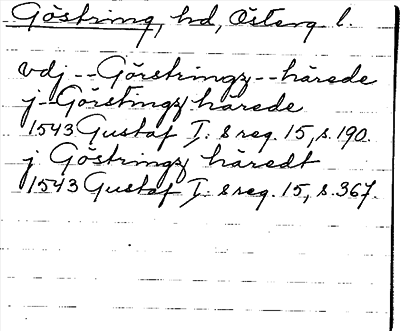 Göstring, hd, Österg l.
vdj -- Görstringz -- härede
j -- Görstingz härede
1543 Gustaf I: s reg. 15, s. 190.
j Göstringz häredt
1543 Gustaf I. s reg. 15, s. 367.